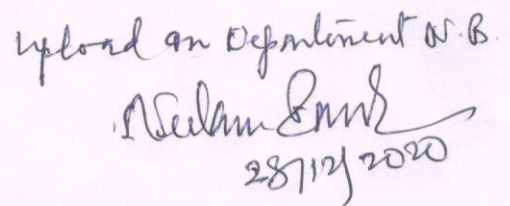 upload on Department N.B.
Neelam
28/12/2020